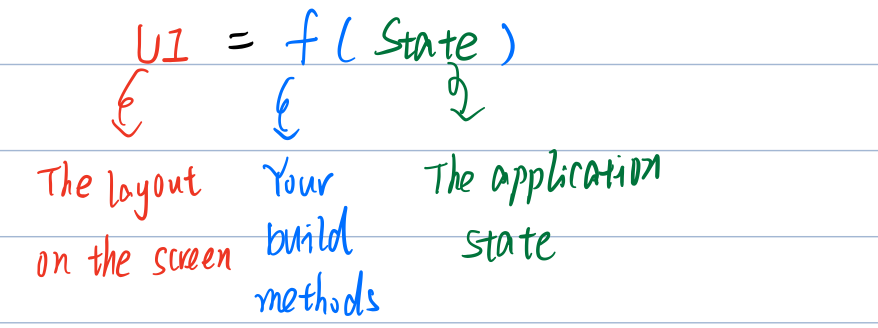 UI = f ( State )
The layout
on the screen
Your
build
methods
The application
state